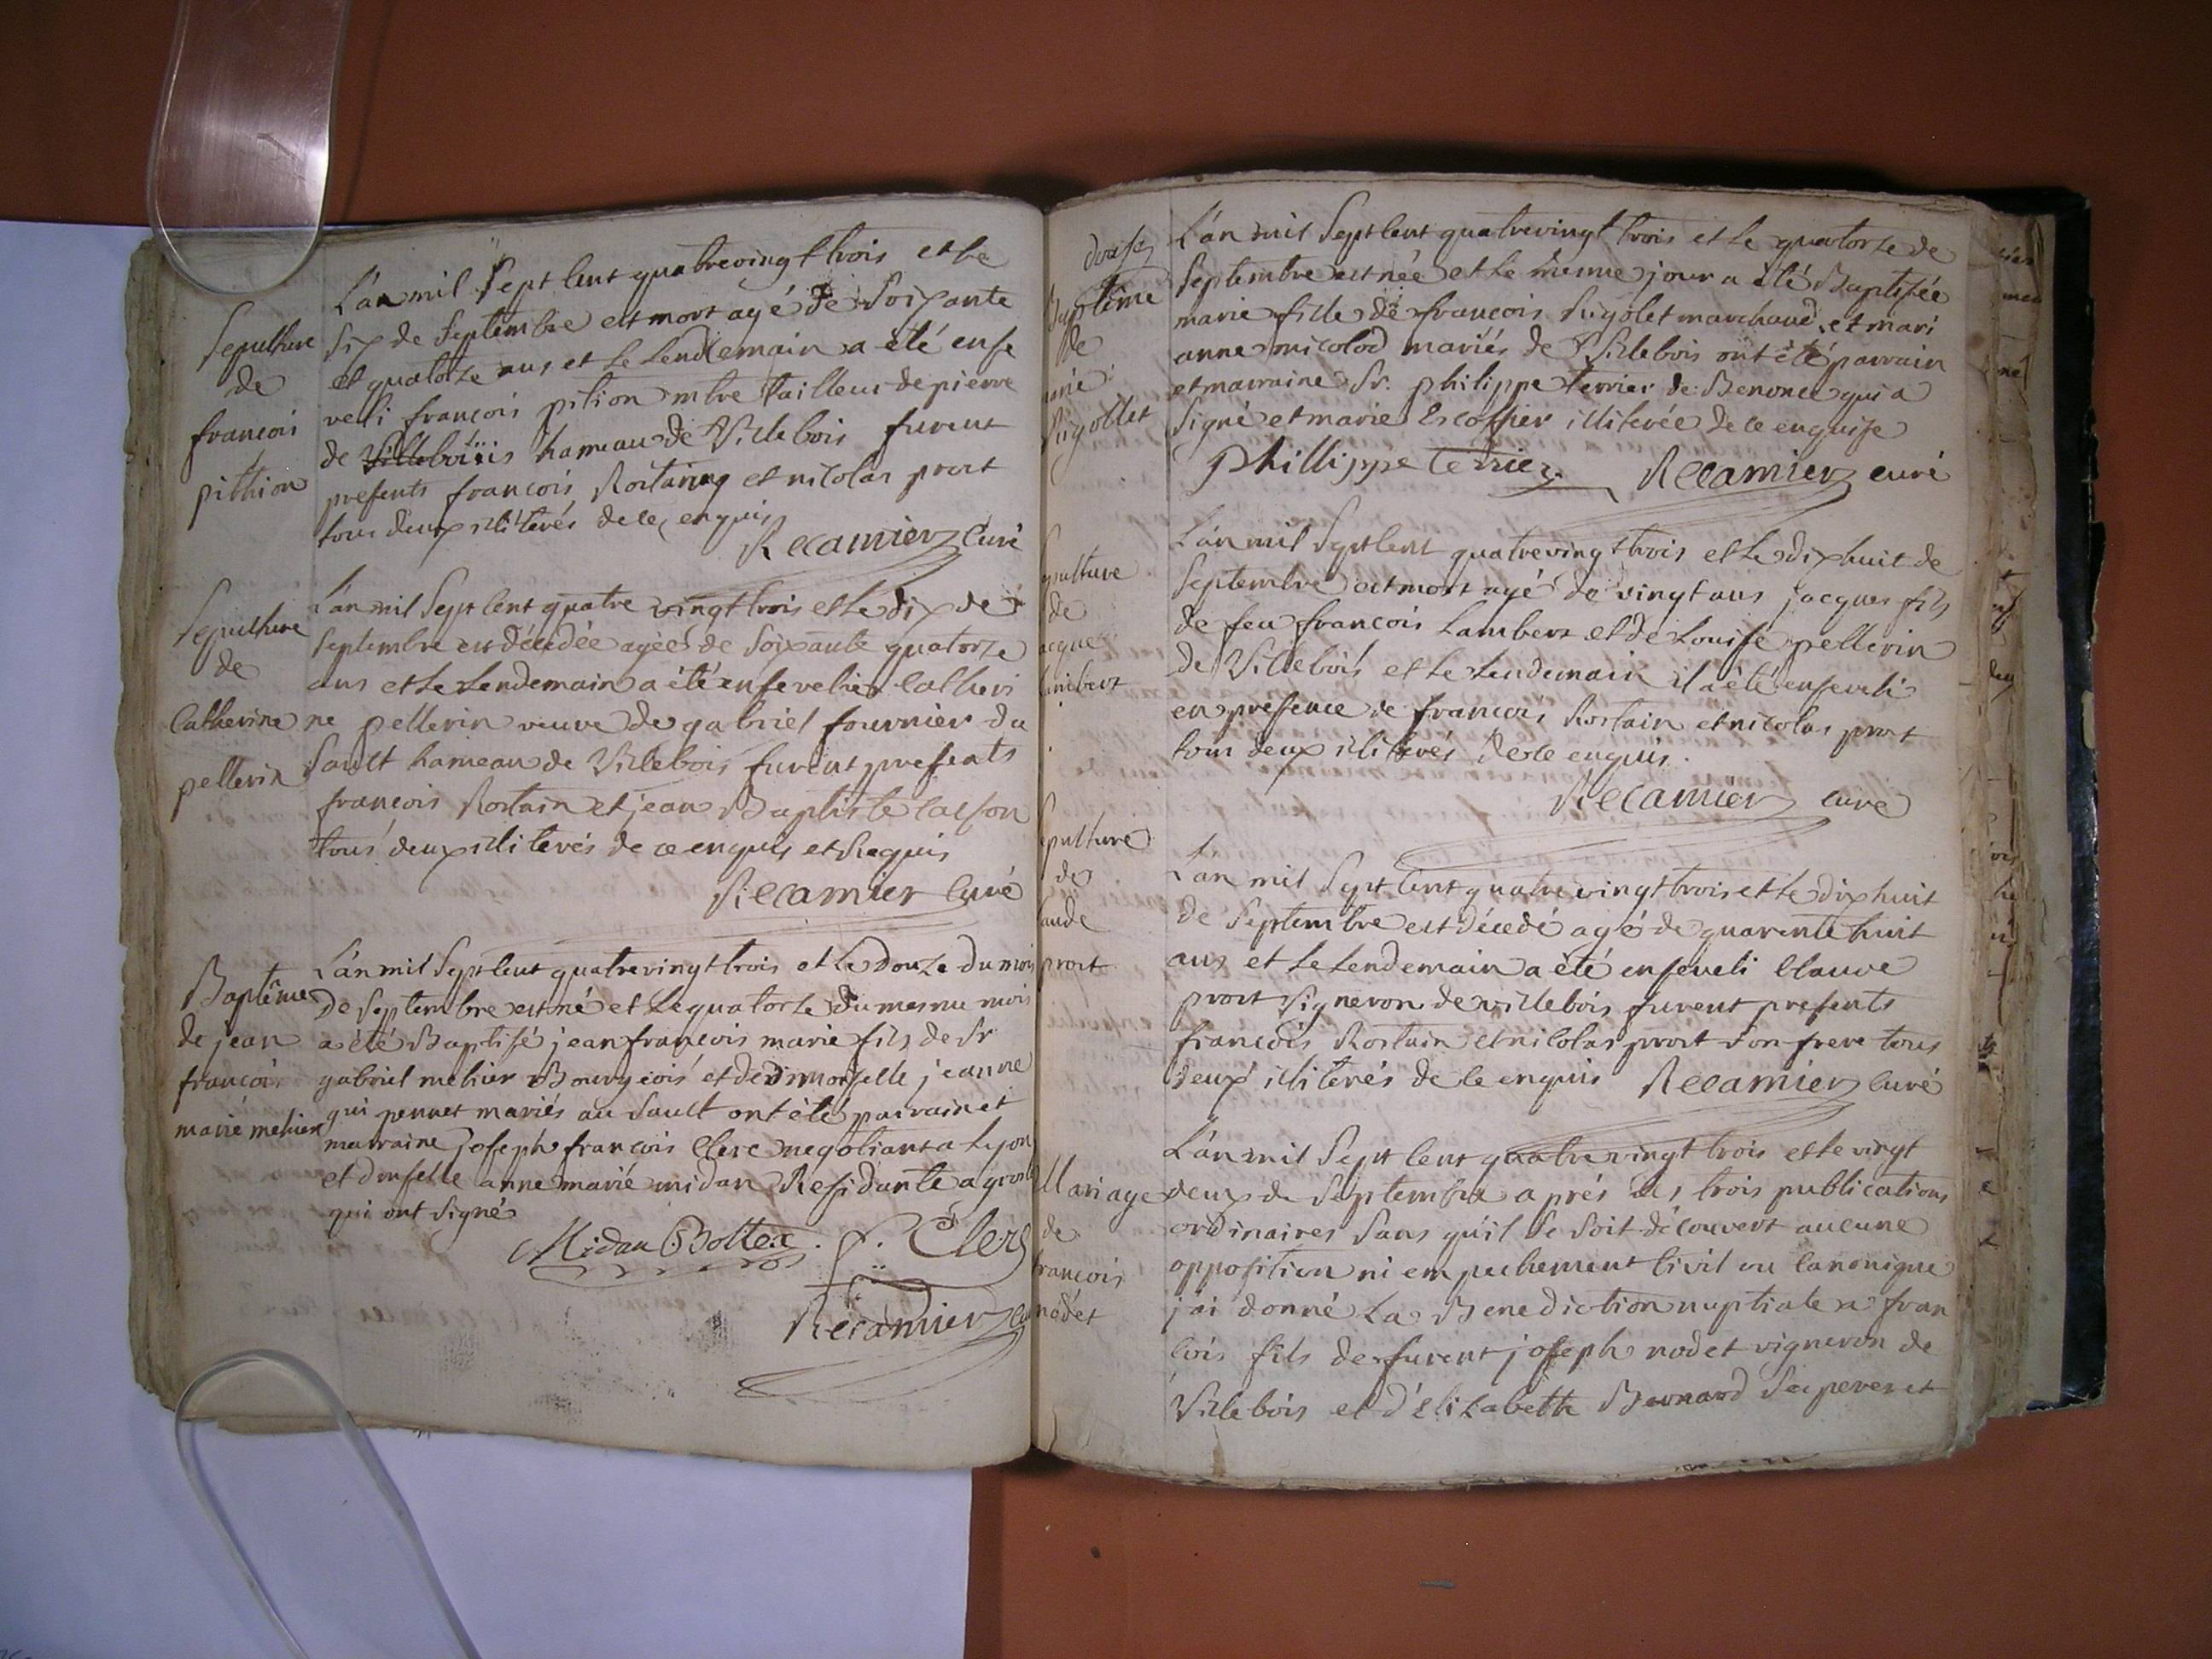 Sepulture
de
francois
pithion
L'an mil sept cent quatrevingt trois et le
six de septembre est mort agé de soixante
et quatorze ans et le lendemain a été ense
veli francois pition mtre tailleur de pierre
de hameau de Villebois furent
presents francois Rostaing et nicolas prost
tous deux illiterés de ce enquis
Recamier curé
Sepulture
de
Catherine
pellerin
L'an mil sept cent quatre vingt trois et le dix de
septembre est décédée agée de soixante quatorze
ans et le lendemain a été ensevelie catheri
ne pellerin veuve de gabriel fournier du
Sault hameau de Villebois furent presents
francois Rostain et jean Baptiste
tous deux illiterés de ce enquis et Requis
Recamier curé
Baptême
de jean
francois
marie mehier
L'an mil sept cent quatrevingt trois et le douze du mois
de septembre est né et le quatorze du mesme mois
a été Baptisé jean francois marie fils de Sr
gabriel mehier Bourgeois et de jeanne
qui pennet mariés au Sault ont été parrain et
marraine joseph francois Clerc negotiant a Lyon
et anne marie midan Residante a
qui ont signé
Midan Bottex. f. Clerc
Recamier cu
douze
Baptême
de
marie
Rigollet
L'an mil sept cent quatrevingt trois et le quatorze de
septembre est née et le même jour a été Baptisée
marie fille de francois Rigolet marchand et mari
anne micolod mariés de Villebois ont été parrain
et marraine Sr. philippe terrier de Benonce qui a
signé et marie Escoffier illiterée de ce enquise
Phillippe terrier Recamier curé
epulture
de
acque
lambert
L'an mil sept cent quatrevingt trois et le dix huit de
septembre est mort agé de vingt ans jacques fils
de feu francois Lambert et de Louise pellerin
de Villebois et le lendemain il a été enseveli
en presence de francois Rostain et nicolas prost
tous deux illiterés de ce enquis.
Recamier curé
epulture
de
laude
prost
L'an mil sept cent quatre vingt trois et le dix huit
de septembre est décedé agé de quarente huit
ans et le lendemain a été enseveli Claude
prost vigneron de villebois furent presents
francois Rostain et nicolas prost son frere tous
deux illiterés de ce enquis Recamier curé
Mariage
de
francois
nodet
L'an mil sept cent quatre vingt trois et le vingt
deux de septembre aprés les trois publications
ordinaires sans qu'il se soit découvert aucune
opposition ni empechement civil ou canonique
j'ai donné la Benediction nuptiale a fran
cois fils de furent joseph nodet vigneron de
Villebois et d'Elizabeth Bernard ses pere et